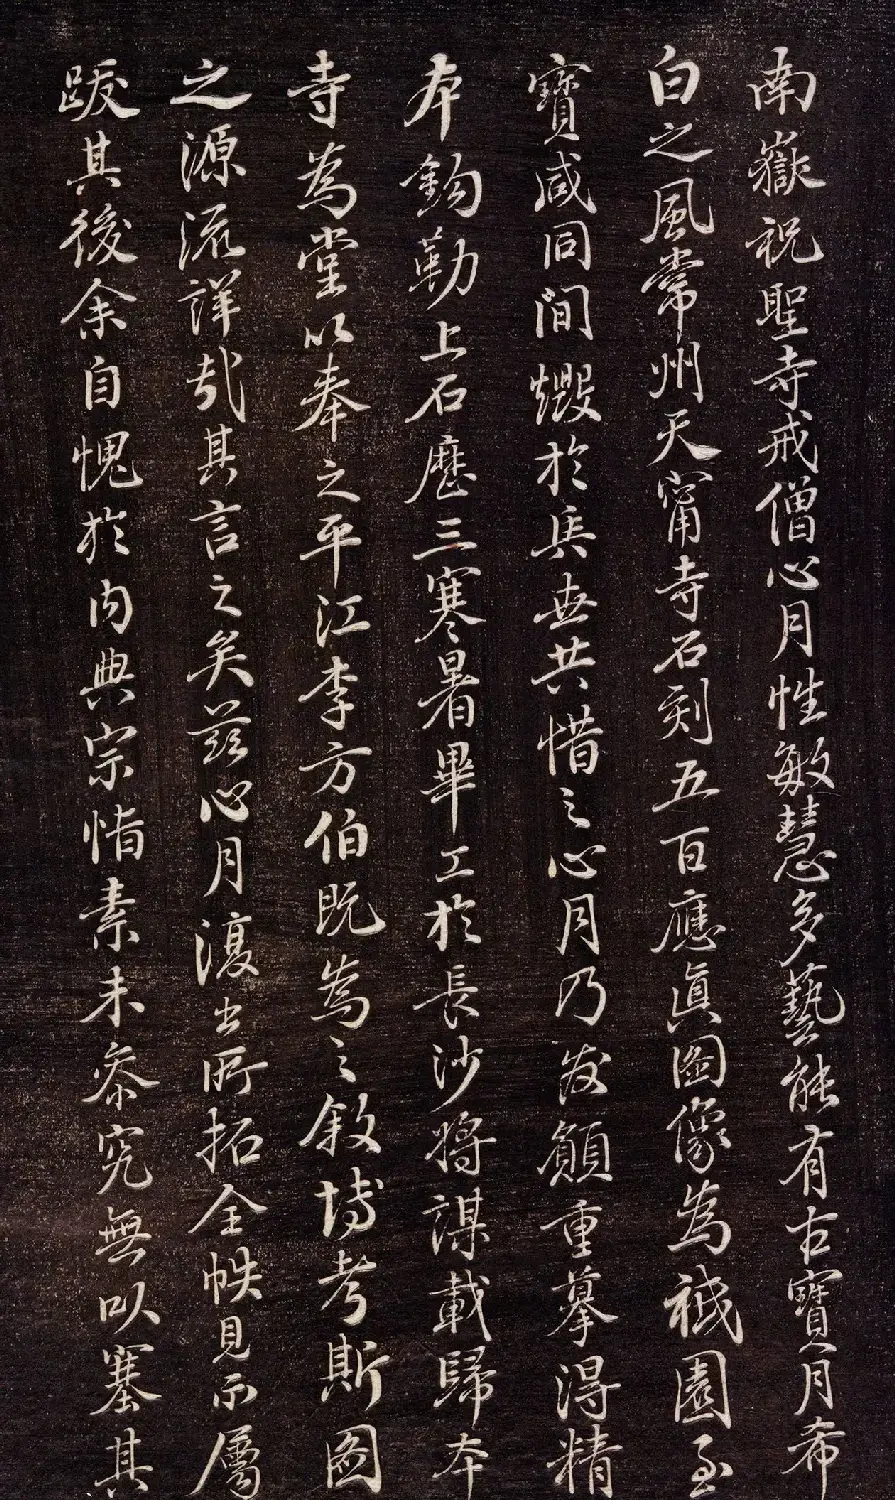 南嶽祝聖寺戒僧心月性敏慧多藝能有古寶月希
白之風常州天甯寺石刻五百應真圖像為祇園至
寶咸同間燬於兵世共惜之心月乃发願重摹得精
本鈎勒上石歷三寒暑畢工於長沙將謀載歸本
寺為堂以奉之平江李方伯既為之敘博考斯圖
之源流詳哉其言之矣茲心月復出所拓全帙見示屬
跋其後余自愧於内典宗惜素未叅究無以塞其